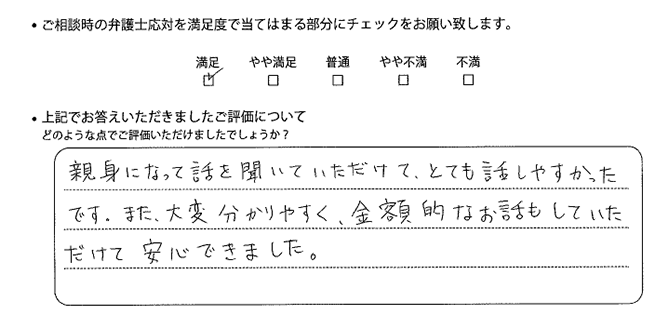 ・ご相談時の弁護士応対を満足度で当てはまる部分にチェックをお願い致します。
満足 やや満足 普通 やや不満 不満
☑ □ □ □ □
・上記でお答えいただきましたご評価について
どのような点でご評価いただけましたでしょうか？
親身になって話を聞いていただけて、とても話しやすかった
です。また、大変分かりやすく、金額的なお話もしていた
だけて安心できました。